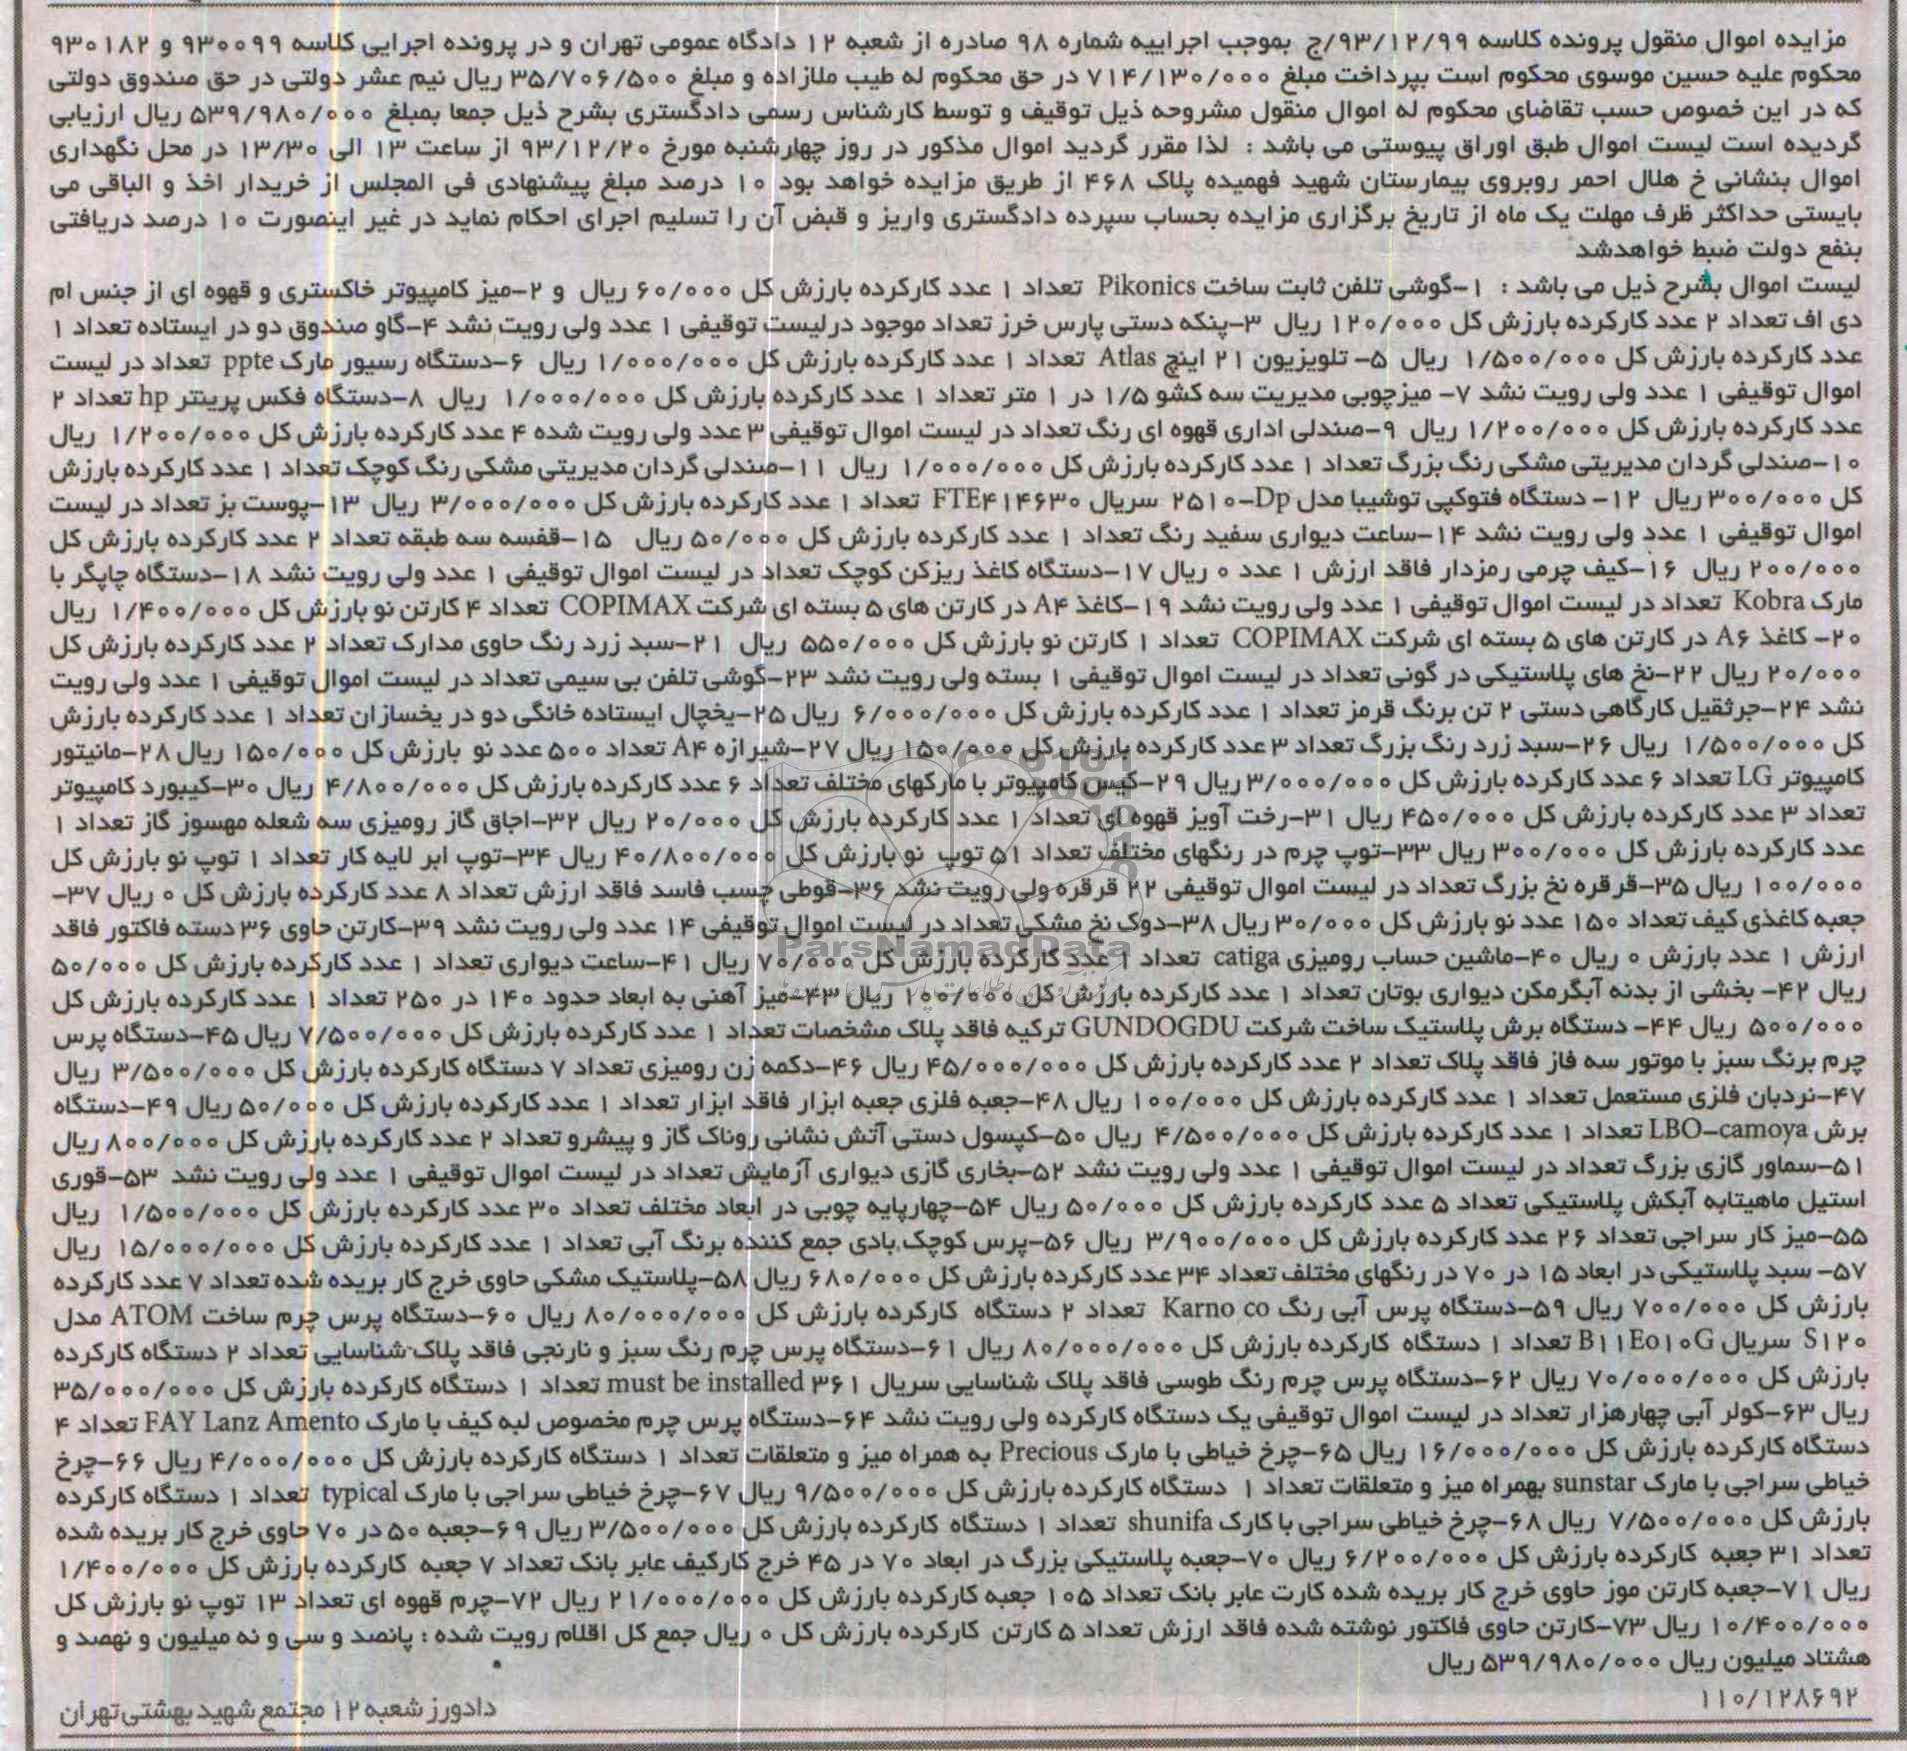 مزایده اموال منقول پرونده کلاسه ۹۳/۱۲/۹۹/ج بموجب اجراییه شماره ۹۸ صادره از شعبه ۱۲ دادگاه عمومی تهران و در پرونده اجرایی کلاسه ۹۳۰۰۹۹ و ۹۳۰۱۸۲
محکوم علیه حسین موسوی محکوم است بپرداخت مبلغ ۷۱۴/۱۳۰/۰۰۰ در حق محکوم له طیب ملازاده و مبلغ ۳۵/۷۰۶/۵۰۰ ریال نیم عشر دولتی در حق صندوق دولتی
که در این خصوص حسب تقاضای محکوم له اموال منقول مشروحه ذیل توقیف و توسط کارشناس رسمی دادگستری بشرح ذیل جمعا بمبلغ ۵۳۹/۹۸۰/۰۰۰ ریال ارزیابی
گردیده است لیست اموال طبق اوراق پیوستی می باشد : لذا مقرر گردید اموال مذکور در روز چهارشنبه مورخ ۹۳/۱۲/۲۰ از ساعت ۱۳ الی ۱۳/۳۰ در محل نگهداری
اموال بنشانی خ هلال احمر روبروی بیمارستان شهید فهمیده پلاک ۴۶۸ از طریق مزایده خواهد بود ۱۰ درصد مبلغ پیشنهادی فی المجلس از خریدار اخذ و الباقی می
بایستی حداکثر ظرف مهلت یک ماه از تاریخ برگزاری مزایده بحساب سپرده دادگستری واریز و قبض آن را تسلیم اجرای احکام نماید در غیر اینصورت ۱۰ درصد دریافتی
بنفع دولت ضبط خواهدشد
لیست اموال بشرح ذیل می باشد : ۱-گوشی تلفن ثابت ساخت Pikonics تعداد ۱ عدد کارکرده بارزش کل ۶۰/۰۰۰ ریال و ۲-میز کامپیوتر خاکستری و قهوه ای از جنس ام
دی اف تعداد ۲ عدد کارکرده بارزش کل ۱۲۰/۰۰۰ ریال ۳-پنکه دستی پارس خرز تعداد موجود درلیست توقیفی ۱ عدد ولی رویت نشد ۴-گاو صندوق دو در ایستاده تعداد ۱
عدد کارکرده بارزش کل ۱/۵۰۰/۰۰۰ ریال ۵- تلویزیون ۲۱ اینچ Atlas تعداد ۱ عدد کارکرده بارزش کل ۱/۰۰۰/۰۰۰ ریال ۶-دستگاه رسیور مارک ppte تعداد در لیست
اموال توقیفی ۱ عدد ولی رویت نشد ۷- میزچوبی مدیریت سه کشو ۱/۵ در ۱ متر تعداد ۱ عدد کارکرده بارزش کل ۱/۰۰۰/۰۰۰ ریال ۸-دستگاه فکس پرینتر hp تعداد ۲
عدد کارکرده بارزش کل ۱/۲۰۰/۰۰۰ ریال ۹-صندلی اداری قهوه ای رنگ تعداد در لیست اموال توقیفی ۳ عدد ولی رویت شده ۴ عدد کارکرده بارزش کل ۱/۲۰۰/۰۰۰ ریال
۱۰-صندلی گردان مدیریتی مشکی رنگ بزرگ تعداد ۱ عدد کارکرده بارزش کل ۱/۰۰۰/۰۰۰ ریال ۱۱-صندلی گردان مدیریتی مشکی رنگ کوچک تعداد ۱ عدد کارکرده بارزش
کل ۳۰۰/۰۰۰ ریال ۱۲- دستگاه فتوکپی توشیبا مدل Dp-۲۵۱۰ سریال FTE۴۱۴۶۳۰ تعداد ۱ عدد کارکرده بارزش کل ۳/۰۰۰/۰۰۰ ریال ۱۳-پوست بز تعداد در لیست
اموال توقیفی ۱ عدد ولی رویت نشد ۱۴-ساعت دیواری سفید رنگ تعداد ۱ عدد کارکرده بارزش کل ۵۰/۰۰۰ ریال ۱۵-قفسه سه طبقه تعداد ۲ عدد کارکرده بارزش کل
۲۰۰/۰۰۰ ریال ۱۶-کیف چرمی رمزدار فاقد ارزش ۱ عدد ۰ ریال ۱۷-دستگاه کاغذ ریزکن کوچک تعداد در لیست اموال توقیفی ۱ عدد ولی رویت نشد ۱۸-دستگاه چاپگر با
مارک Kobra تعداد در لیست اموال توقیفی ۱ عدد ولی رویت نشد ۱۹-کاغذ A۴ در کارتن های ۵ بسته ای شرکت COPIMAX تعداد ۴ کارتن نو بارزش کل ۱/۴۰۰/۰۰۰ ریال
۲۰- کاغذ A۶ در کارتن های ۵ بسته ای شرکت COPIMAX تعداد ۱ کارتن نو بارزش کل ۵۵۰/۰۰۰ ریال ۲۱-سبد زرد رنگ حاوی مدارک تعداد ۲ عدد کارکرده بارزش کل
۲۰/۰۰۰ ریال ۲۲-نخ های پلاستیکی در گونی تعداد در لیست اموال توقیفی ۱ بسته ولی رویت نشد ۲۳-گوشی تلفن بی سیمی تعداد در لیست اموال توقیفی ۱ عدد ولی رویت
نشد ۲۴-جرثقیل کارگاهی دستی ۲ تن برنگ قرمز تعداد ۱ عدد کارکرده بارزش کل ۶/۰۰۰/۰۰۰ ریال ۲۵-یخچال ایستاده خانگی دو در یخسازان تعداد ۱ عدد کارکرده بارزش
کل ۱/۵۰۰/۰۰۰ ریال ۲۶-سبد زرد رنگ بزرگ تعداد ۳ عدد کارکرده بارزش کل ۱۵۰/۰۰۰ ریال ۲۷-شیرازه A۴ تعداد ۵۰۰ عدد نو بارزش کل ۱۵۰/۰۰۰ ریال ۲۸-مانیتور
کامپیوتر LG تعداد ۶ عدد کارکرده بارزش کل ۳/۰۰۰/۰۰۰ ریال ۲۹-کیس کامپیوتر با مارکهای مختلف تعداد ۶ عدد کارکرده بارزش کل ۴/۸۰۰/۰۰۰ ریال ۳۰-کیبورد کامپیوتر
تعداد ۳ عدد کارکرده بارزش کل ۴۵۰/۰۰۰ ریال ۳۱-رخت آویز قهوه ای تعداد ۱ عدد کارکرده بارزش کل ۲۰/۰۰۰ ریال ۳۲-اجاق گاز رومیزی سه شعله مهسوز گاز تعداد ۱
عدد کارکرده بارزش کل ۳۰۰/۰۰۰ ریال ۳۳-توپ چرم در رنگهای مختلف تعداد ۵۱ توپ نو بارزش کل ۴۰/۸۰۰/۰۰۰ ریال ۳۴-توپ ابر لایه کار تعداد ۱ توپ نو بارزش کل
۱۰۰/۰۰۰ ریال ۳۵-قرقره نخ بزرگ تعداد در لیست اموال توقیفی ۲۲ قرقره ولی رویت نشد ۳۶-قوطی چسب فاسد فاقد ارزش تعداد ۸ عدد کارکرده بارزش کل ۰ ریال ۳۷-
جعبه کاغذی کیف تعداد ۱۵۰ عدد نو بارزش کل ۳۰/۰۰۰ ریال ۳۸-دوک نخ مشکی تعداد در لیست اموال توقیفی ۱۴ عدد ولی رویت نشد ۳۹-کارتن حاوی ۳۶ دسته فاکتور فاقد
ParsNamadData
ارزش ۱ عدد بارزش ۰ ریال ۴۰-ماشین حساب رومیزی catiga تعداد ۱ عدد کارکرده بارزش کل ۷۰/۰۰۰ ریال ۴۱-ساعت دیواری تعداد ۱ عدد کارکرده بارزش کل ۵۰/۰۰۰
ریال ۴۲- بخشی از بدنه آبگرمکن دیواری بوتان تعداد ۱ عدد کارکرده بارزش کل ۱۰۰/۰۰۰ ریال ۴۳-میز آهنی به ابعاد حدود ۱۴۰ در ۲۵۰ تعداد ۱ عدد کارکرده بارزش کل
۵۰۰/۰۰۰ ریال ۴۴- دستگاه برش پلاستیک ساخت شرکت GUNDOGDU ترکیه فاقد پلاک مشخصات تعداد ۱ عدد کارکرده بارزش کل ۷/۵۰۰/۰۰۰ ریال ۴۵-دستگاه پرس
چرم برنگ سبز با موتور سه فاز فاقد پلاک تعداد ۲ عدد کارکرده بارزش کل ۴۵/۰۰۰/۰۰۰ ریال ۴۶-دکمه زن رومیزی تعداد ۷ دستگاه کارکرده بارزش کل ۳/۵۰۰/۰۰۰ ریال
۴۷-نردبان فلزی مستعمل تعداد ۱ عدد کارکرده بارزش کل ۱۰۰/۰۰۰ ریال ۴۸-جعبه فلزی جعبه ابزار فاقد ابزار تعداد ۱ عدد کارکرده بارزش کل ۵۰/۰۰۰ ریال ۴۹-دستگاه
برش LBO-camoya تعداد ۱ عدد کارکرده بارزش کل ۴/۵۰۰/۰۰۰ ریال ۵۰-کپسول دستی آتش نشانی روناک گاز و پیشرو تعداد ۲ عدد کارکرده بارزش کل ۸۰۰/۰۰۰ ریال
۵۱-سماور گازی بزرگ تعداد در لیست اموال توقیفی ۱ عدد ولی رویت نشد ۵۲-بخاری گازی دیواری آزمایش تعداد در لیست اموال توقیفی ۱ عدد ولی رویت نشد ۵۳-قوری
استیل ماهیتابه آبکش پلاستیکی تعداد ۵ عدد کارکرده بارزش کل ۵۰/۰۰۰ ریال ۵۴-چهارپایه چوبی در ابعاد مختلف تعداد ۳۰ عدد کارکرده بارزش کل ۱/۵۰۰/۰۰۰ ریال
۵۵-میز کار سراجی تعداد ۲۶ عدد کارکرده بارزش کل ۳/۹۰۰/۰۰۰ ریال ۵۶-پرس کوچک بادی جمع کننده برنگ آبی تعداد ۱ عدد کارکرده بارزش کل ۱۵/۰۰۰/۰۰۰ ریال
۵۷- سبد پلاستیکی در ابعاد ۱۵ در ۷۰ در رنگهای مختلف تعداد ۳۴ عدد کارکرده بارزش کل ۶۸۰/۰۰۰ ریال ۵۸-پلاستیک مشکی حاوی خرج کار بریده شده تعداد ۷ عدد کارکرده
بارزش کل ۷۰۰/۰۰۰ ریال ۵۹-دستگاه پرس آبی رنگ Karno co تعداد ۲ دستگاه کارکرده بارزش کل ۸۰/۰۰۰/۰۰۰ ریال ۶۰-دستگاه پرس چرم ساخت ATOM مدل
S۱۲۰ سریال B۱۱E۰۱۰G تعداد ۱ دستگاه کارکرده بارزش کل ۸۰/۰۰۰/۰۰۰ ریال ۶۱-دستگاه پرس چرم رنگ سبز و نارنجی فاقد پلاک شناسایی تعداد ۲ دستگاه کارکرده
بارزش کل ۷۰/۰۰۰/۰۰۰ ریال ۶۲-دستگاه پرس چرم رنگ طوسی فاقد پلاک شناسایی سریال ۳۶۱ must be installed تعداد ۱ دستگاه کارکرده بارزش کل ۳۵/۰۰۰/۰۰۰
ریال ۶۳-کولر آبی چهارهزار تعداد در لیست اموال توقیفی یک دستگاه کارکرده ولی رویت نشد ۶۴-دستگاه پرس چرم مخصوص لبه کیف با مارک FAY Lanz Amento تعداد ۴
دستگاه کارکرده بارزش کل ۱۶/۰۰۰/۰۰۰ ریال ۶۵-چرخ خیاطی با مارک Precious به همراه میز و متعلقات تعداد ۱ دستگاه کارکرده بارزش کل ۴/۰۰۰/۰۰۰ ریال ۶۶-چرخ
خیاطی سراجی با مارک sunstar بهمراه میز و متعلقات تعداد ۱ دستگاه کارکرده بارزش کل ۹/۵۰۰/۰۰۰ ریال ۶۷-چرخ خیاطی سراجی با مارک typical تعداد ۱ دستگاه کارکرده
بارزش کل ۷/۵۰۰/۰۰۰ ریال ۶۸-چرخ خیاطی سراجی با کارک shunifa تعداد ۱ دستگاه کارکرده بارزش کل ۳/۵۰۰/۰۰۰ ریال ۶۹-جعبه ۵۰ در ۷۰ حاوی خرج کار بریده شده
تعداد ۳۱ جعبه کارکرده بارزش کل ۶/۲۰۰/۰۰۰ ریال ۷۰-جعبه پلاستیکی بزرگ در ابعاد ۷۰ در ۴۵ خرج کارکیف عابر بانک تعداد ۷ جعبه کارکرده بارزش کل ۱/۴۰۰/۰۰۰
ریال ۷۱-جعبه کارتن موز حاوی خرج کار بریده شده کارت عابر بانک تعداد ۱۰۵ جعبه کارکرده بارزش کل ۲۱/۰۰۰/۰۰۰ ریال ۷۲-چرم قهوه ای تعداد ۱۳ توپ نو بارزش کل
۱۰/۴۰۰/۰۰۰ ریال ۷۳-کارتن حاوی فاکتور نوشته شده فاقد ارزش تعداد ۵ کارتن کارکرده بارزش کل ۰ ریال جمع کل اقلام رویت شده : پانصد و سی و نه میلیون و نهصد و
هشتاد میلیون ریال ۵۳۹/۹۸۰/۰۰۰ ریال
۱۱۰/۱۲۸۶۹۲
دادورز شعبه ۱۲ مجتمع شهید بهشتی تهران